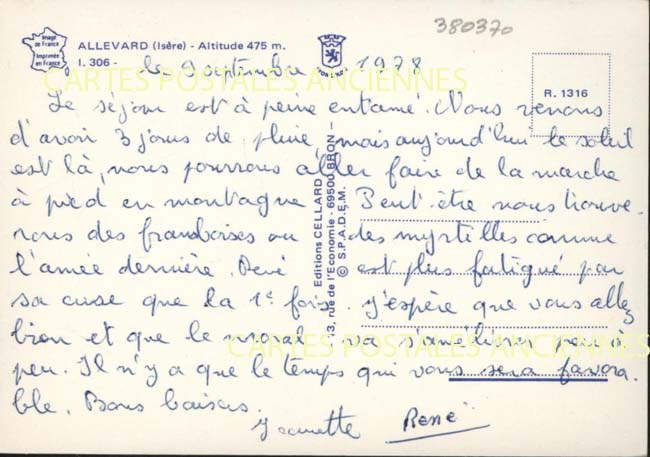 380370
Image de France
Imprimée en France
ALLEVARD (Isère) - Altitude 475 m.
I. 306 -
R. 1316
le 9 septembre 1978
CARTES POSTALES ANCIENNES
Le séjour est à peine entamé. Nous venons
d'avoir 3 jours de pluie, mais aujourd'hui le soleil
est là, nous pourrons aller faire de la marche
à pied en montagne Peut-être nous trouve-
rons des framboises ou des myrtilles comme
l'année dernière. René est plus fatigué par
sa cure que la 1e fois. J'espère que vous allez
bien et que le moral va s'améliorer peu à
peu. Il n'y a que le temps qui vous sera favora
ble. Bons baisers.
Jeannette René
CARTES POSTALES ANCIENNES
Editions CELLARD
13, rue de l'Economie - 69500 BRON -
© S.P.A.D.E.M.